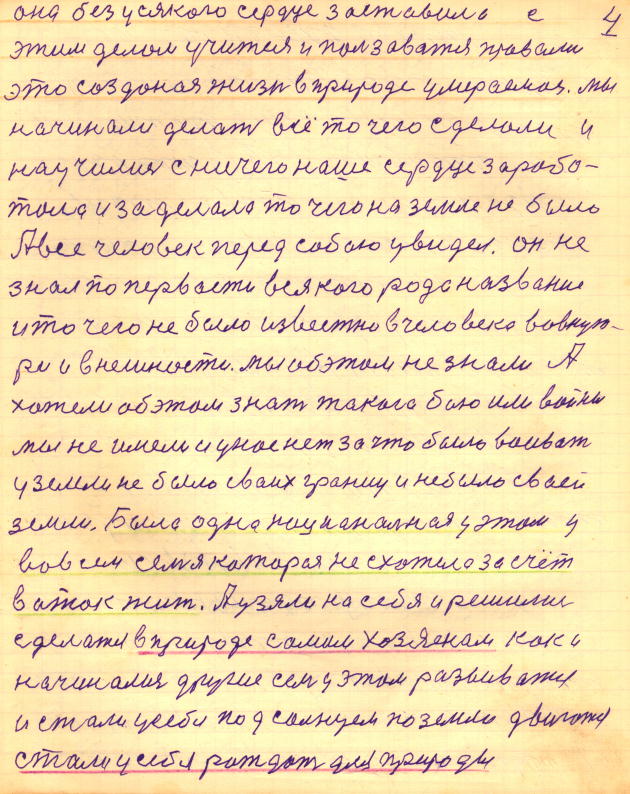 она без усякого сердце заставило с 4
этим делом учится и ползаватя правами
это создоная жизн в природе умераемая. мы
начинали делат всё то чего сделоли и
научилия с ничего наше сердце зарабо-
тола и заделала то чего на земле не было
А все человек перед собою увидел. он не
знал по первости всякого рода название
и то чего не было известно в человека вовнут-
ри и внешности. мы об этом не знали А
хотели об этом знат такога бою или войны
мы не имели и у нас нет за что было воиват
у земли не было сваих границ и небыло своей
земли. Была одна национаналная у этом у
во всем семя каторая не схотела за счёт
в аток жит. А узяли на себя и решили
сделатя в природе самим хозяенам как и
начиналия другие сем у этом развиватя
и стали у себи под солнцем по земли двигатя
стали у себя рождат для природы